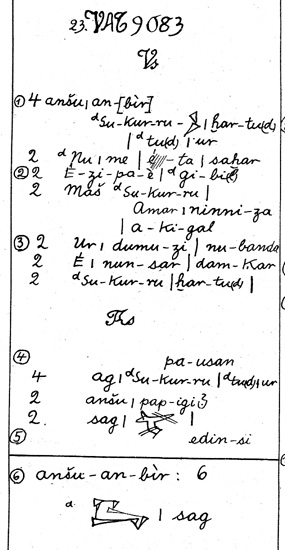 23. VAT 9083
Vs
① 4 anšu | an-[bìr]
ᵈSu-kur-ru- | ḫar-tu(d)
| ᵈtu(d) | ur
2 ᵈnu | me | é-ta | sahar
② 2 E-zi-pa-è | ᵈgi-bil
2 Maš ᵈSu-kur-ru |
Amar | ninni-za
| a-ki-gal
③ 2 Ur | dumu-zi | nu-banda
2 É | nun-sar | dam-kar
2 ᵈSu-kur-ru | ḫar-tu(d) |
Rs
④ pa-usan
4 ag | ᵈSu-kur-ru | ᵈtu(d) | ur
2 anšu | pap-igi
2. sag | |
⑤ edin-si
⑥ anšu-an-bìr : 6
ᵈ | sag